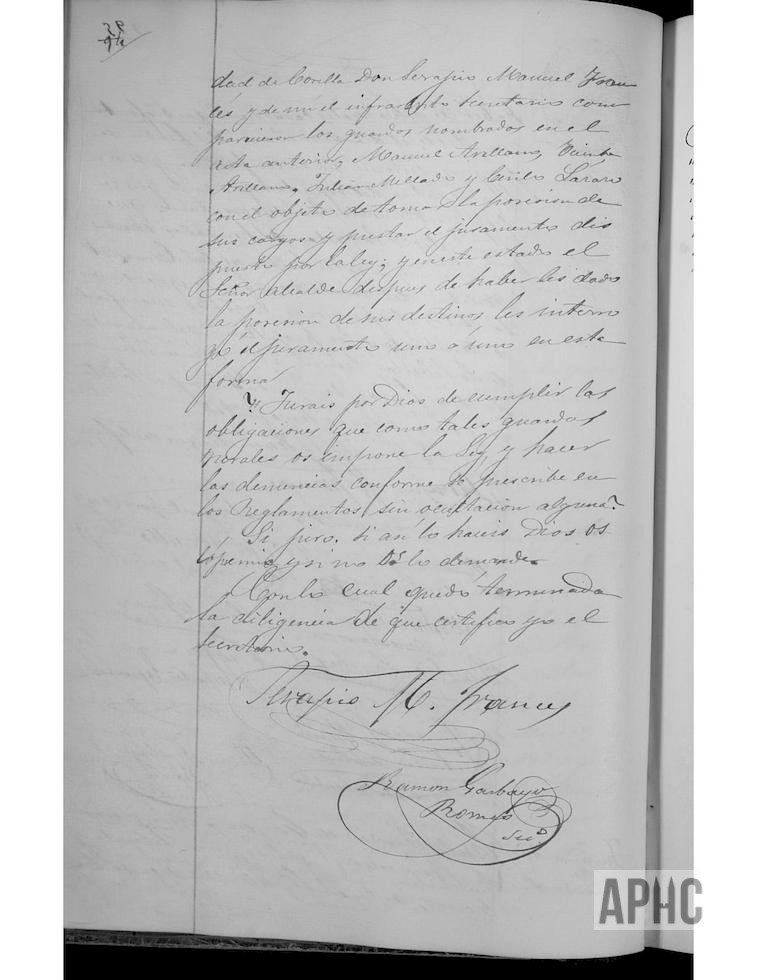 dad de Corella Don Serapio Manuel Fran
cés y de mi el infrascrito secretario com
parecieron los guardas nombrados en el
acta anterior, Manuel Arellano, Vicente
Arellano, Julian Mellado y Cirilo Lazaro
con el objeto de tomar la posesion de
sus cargos y prestar el juramento dis
puesto por la ley; y en este estado el
Señor alcalde despues de haber les dado
la posesion de sus destinos les interro
gó el juramento uno á uno en esta
forma
¿Jurais por Dios de cumplir las
obligaciones que como tales guardas
rurales os impone la Ley, y hacer
las denuncias conforme se prescribe en
los Reglamentos sin ocultacion alguna?
Si juro. si asi lo haceis Dios os
lo premie y si no os lo demande.
Con lo cual quedó terminada
la diligencia de que certifico yo el
secretario.
Serapio M. Frances
Ramon Garbayo
Romeo
Srio
APHC